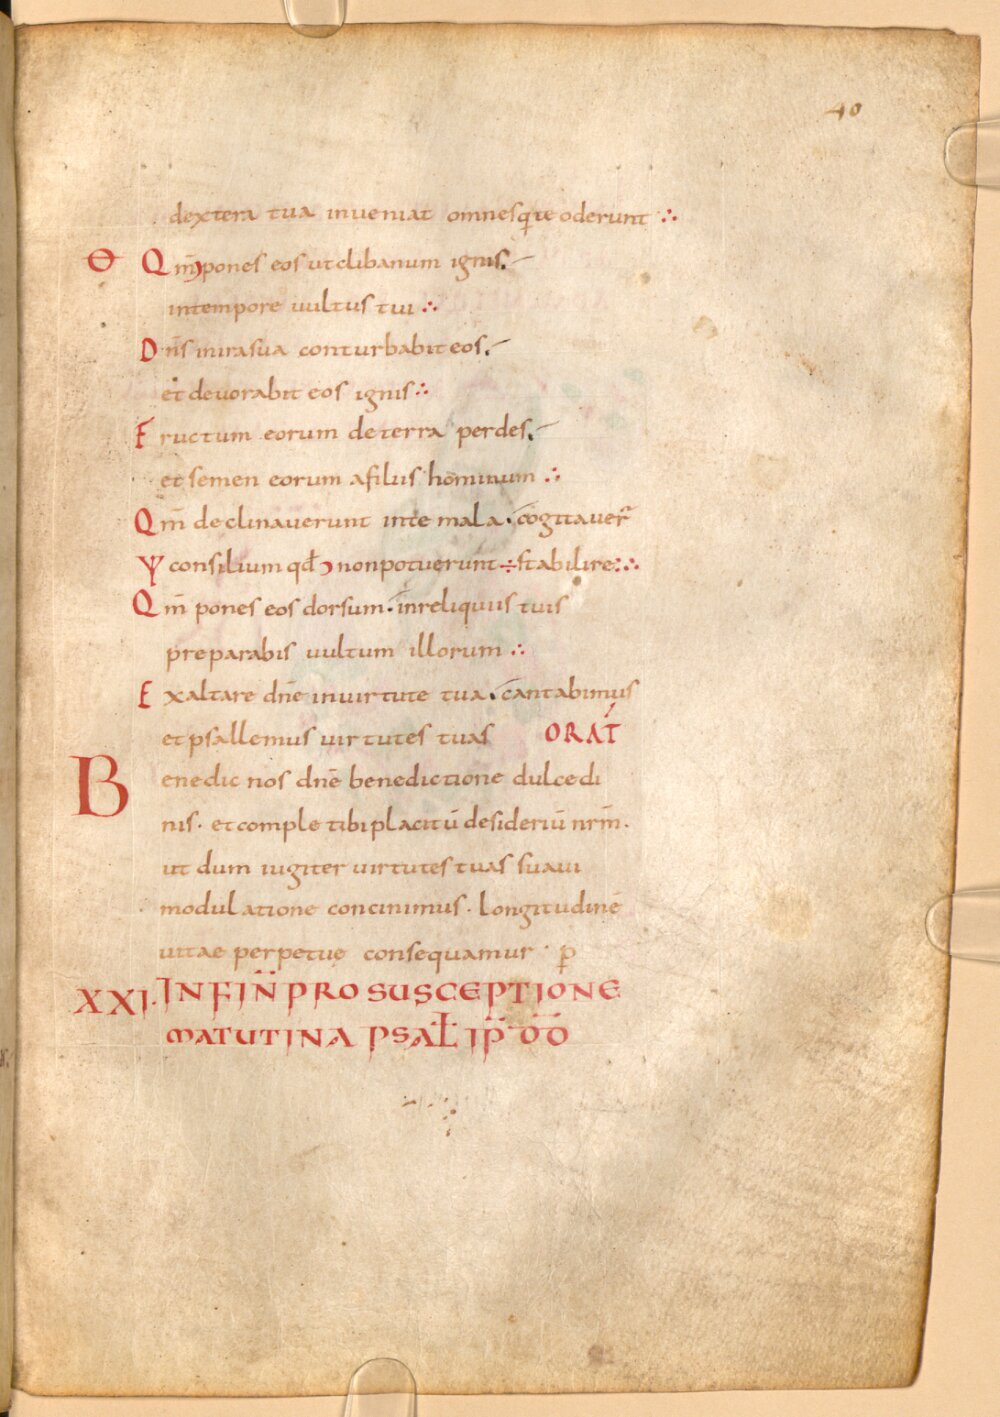 40
dextera tua inueniat omnesq; te oderunt ∴
Θ Qm̄ pones eos ut clibanum ignis.
in tempore uultus tui ∴
Dn̄s in ira sua conturbabit eos.
et deuorabit eos ignis ∴
Fructum eorum de terra perdes.
et semen eorum a filiis hominum ∴
Qm̄ declinauerunt in te mala. cogitauer̄
Ψ consilium qđ non potuerunt ÷ stabilire: ∴
Qm̄ pones eos dorsum. in reliquiis tuis
preparabis uultum illorum ∴
Exaltare dn̄e in uirtute tua. cantabimus
et psallemus uirtutes tuas ORAT̄
Benedic nos dn̄e benedictione dulcedi
nis. et comple tibi placitū desideriū nrm̄.
ut dum iugiter uirtutes tuas suaui
modulatione concinimus. Longitudinē
uitae perpetuę consequamur. p̱
XXI. IN FIN̄ PRO SUSCEPTIONE
MATUTINA PSAL̄ IP̄ D̄D̄